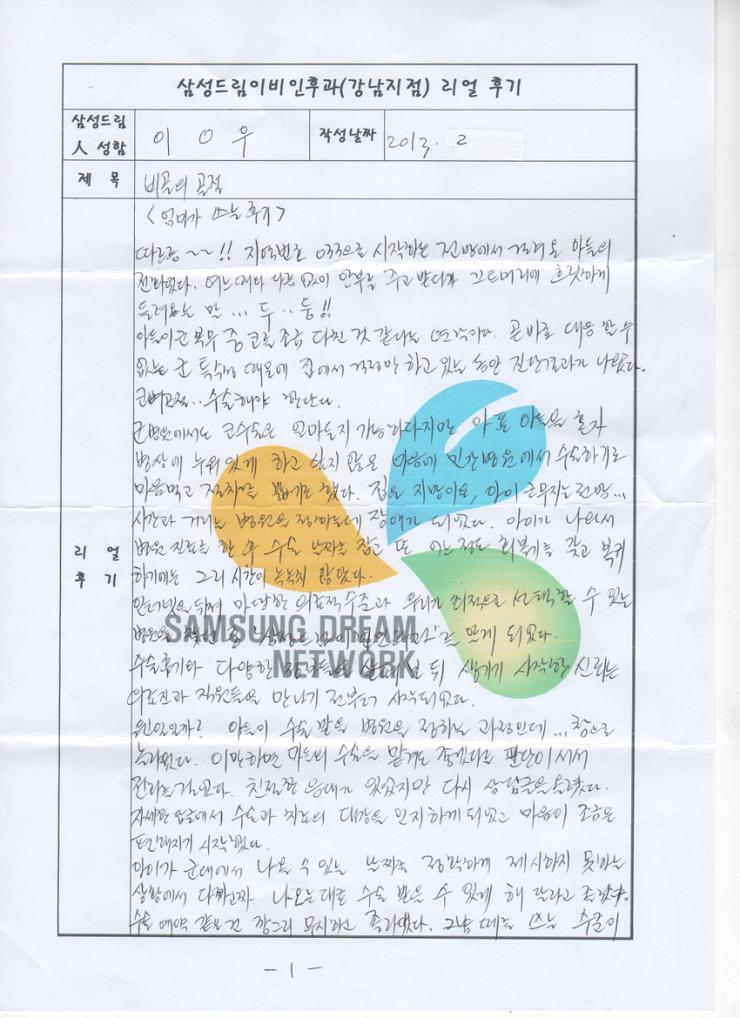 삼성드림이비인후과(강남지점) 리얼 후기
삼성드림
人 성함
이 ○ 우
작성날짜
2013. 2
제 목
비골의 골절
리 얼
후 기
<엄마가 쓰는 후기>
따르릉~~!! 지역번호 033으로 시작하는 전방에서 걸려온 아들의
전화였다. 여느 때와 다름 없이 안부를 주고 받다가 끄트머리에 흐릿하게
들려오는 말... 두··둥!!
아들이 군 복무 중 코를 조금 다친 것 같다는 곧바로 대응 할 수
없는 군 특수성 때문에 집에서 걱정만 하고 있는 동안 진단결과가 나왔다.
수술해야 한단다.
군병원에서도 코수술은 얼마든지 가능하다지만 아픈 아들을 혼자
병상에 누워있게 하고 싶지 않은 마음에 민간병원에서 수술하기로
마음먹고 절차를 밟기로 했다. 집은 지방이요, 아이 근무지는 전방...
시간과 거리는 병원을 정하는데 장애가 되었다. 아이가 나와서
병원 진료를 한 후 수술 날짜를 잡고 또 어느정도 회복기를 갖고 복귀
하기에는 그리 시간이 녹녹치 않았다.
인터넷을 뒤져 마땅한 의료적수준과 우리가 최적으로 선택할 수 있는
병원을 알게 되었다.
수술후기와 다양한 뒤 생기기 시작한 신뢰는
의료진과 직원들을 만나기 전부터 시작되었다.
아들이 수술 받을 병원을 정하는 과정인데...참으로
놀라웠다. 이만하면 아들의 수술을 맡겨도 좋겠다는 판단이 서서
전화를 걸었다. 친절한 응대가 있었지만 다시 상담글을 올렸다.
자세한 답글에서 수술과 치료의 대강을 인지하게 되었고 마음이 조금은
편안해지기 시작했다.
아이가 군대에서 나올 수 있는 날짜를 정확하게 제시하지 못하는
상황에서 다짜고짜 나오는대로 수술 받을 수 있게 해 달라고 졸랐다.
수술 예약 같은건 깡그리 무시하고 졸라댔다. 그냥 떼를 쓰는 수준이
SAMSUNG DREAM
NETWORK
-1-